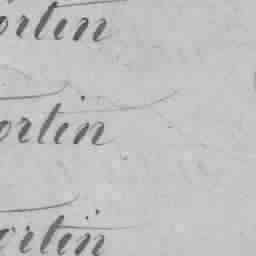 ortin
ortin
ortin